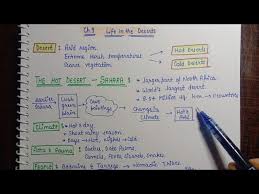 Ch 9 Life in the Deserts
Desert → Arid region
Extreme harsh temperatures
Scarce vegetation
Hot Deserts
Cold Deserts
THE HOT DESERT - SAHARA :
Largest part of North Africa
World's largest desert
8.5+ Million sq. km → 11 countries
earlier Sahara
Lush green
Cave paintings
Change in Climate
Hot &
Climate : Hot & dry
Short rainy season
Days - Hot, Nights - Cold
Flora & Fauna : Cactus, Date Palms,
Camels, Foxes, Lizards, Snakes
People : Bedouins & Tuaregs → Nomadic Tribes